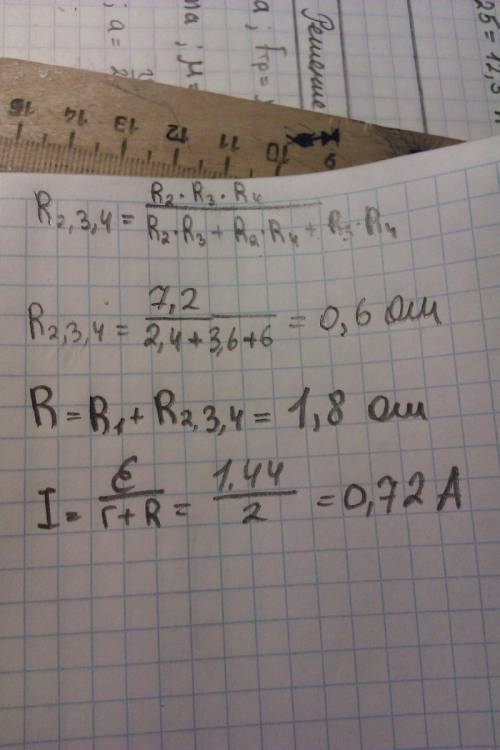 25 = 12,5
Решение
a; Fтр =
; μ =
; a =
15 14 13 12 11 10 9
R2,3,4 = R2·R3·R4 / R2·R3 + R2·R4 + R3·R4
R2,3,4 = 7,2 / 2,4+3,6+6 = 0,6 ом
R = R1 + R2,3,4 = 1,8 ом
I = ℰ / r+R = 1.44 / 2 = 0,72 А